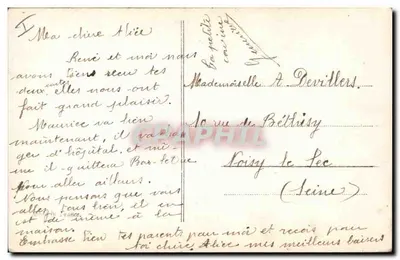 I
Ma chère Alice
René et moi nous
avons bien reçu tes
deux cartes elles nous ont
fait grand plaisir.
Maurice va bien
maintenant, il va
ger d'hôpital, et mê
me il quittera Bar-le-Duc
pour aller ailleurs.
Nous pensons que vous
allez tous bien, il en
est de même à la
maison.
Embrasse bien tes parents pour moi et reçois pour
toi chère Alice mes meilleurs baisers
Ta petite
cousine
Mademoiselle A Devillers.
10 rue de Béthisy
Noisy le Sec
(Seine)
CPAPHIL